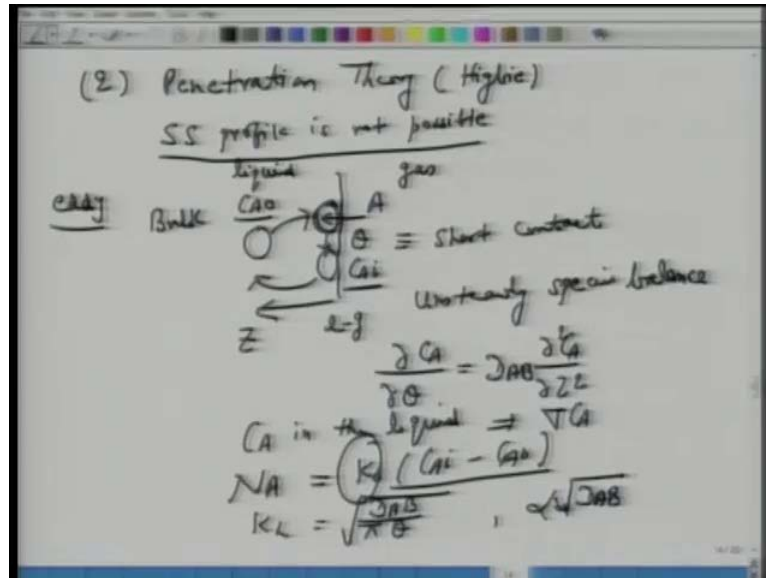 (2) Penetration Theory (Higbie)
SS profile is not possible
liquid gas
eddy Bulk CA0 A
θ ≡ Short contact
CAi
Unsteady specie balance
Z l-g
∂CA/∂θ = DAB ∂²CA/∂Z²
CA in the liquid ⇒ ∇CA
NA = K (CAi - CA0)
KL = √(DAB/πθ) , α √DAB